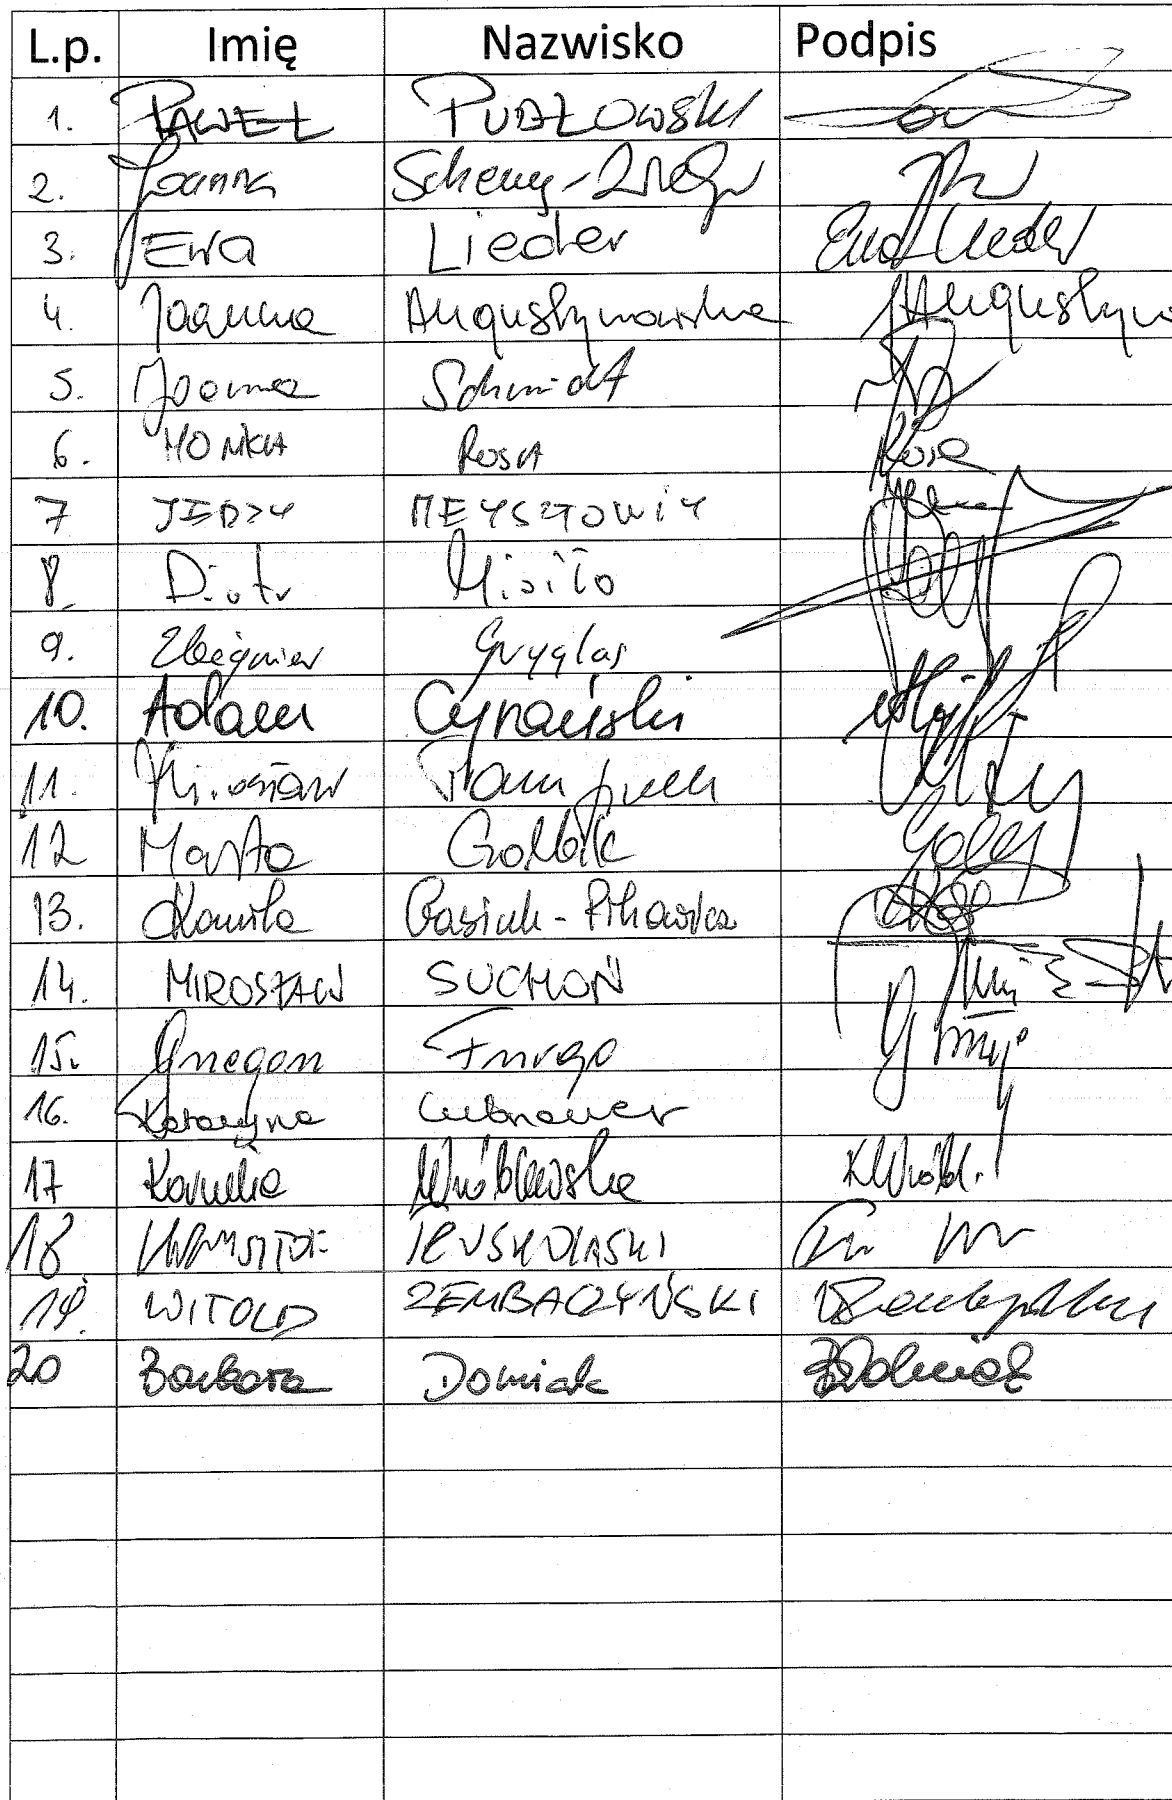 L.p. Imię Nazwisko Podpis
1. PAWEŁ PUDŁOWSKI
2. Joanna Scheuring-
3. Ewa Lieder Ewa Lieder
4. Joanna Augustynowska Augustynow
5. Joanna Schmidt
6. MONIKA ROSA Rosa
7 JERZY MEYSZTOWICZ
8. Piotr Misiło
9. Zbigniew Gryglas
10. Adam Cyrański
11. Mirosław Pampuch
12 Marta Golbik
13. Kamila Gasiuk-Pihowicz
14. MIROSŁAW SUCHOŃ
15. Grzegorz Furgo
16. Katarzyna Lubnauer
17 Kornelia Wróblewska KWróbl.
18
19. WITOLD ZEMBACZYŃSKI
20 Barbara Dolniak BDolniak